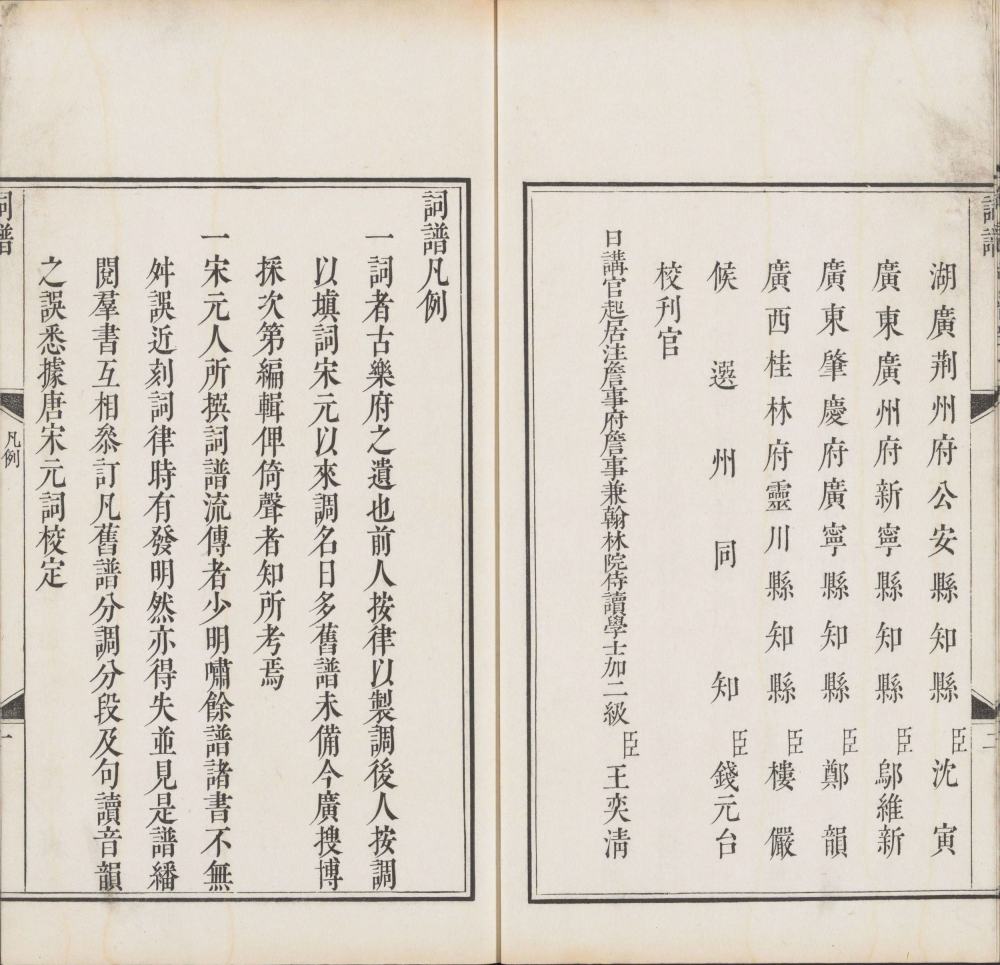 詞譜
二
湖廣荆州府公安縣知縣臣沈寅
廣東廣州府新寧縣知縣臣鄔維新
廣東肇慶府廣寧縣知縣臣鄭韻
廣西桂林府靈川縣知縣臣樓儼
候選州同知臣錢元台
校刋官
日講官起居注詹事府詹事兼翰林院侍讀學士加二級臣王奕淸
詞譜凡例
一詞者古樂府之遺也前人按律以製調後人按調
以塡詞宋元以來調名日多舊譜未備今廣搜博
採次第編輯俾倚聲者知所考焉
一宋元人所撰詞譜流傳者少明嘯餘譜諸書不無
舛誤近刻詞律時有發明然亦得失並見是譜繙
閱羣書互相叅訂凡舊譜分調分段及句讀音韻
之誤悉據唐宋元詞校定
詞譜
凡例
一